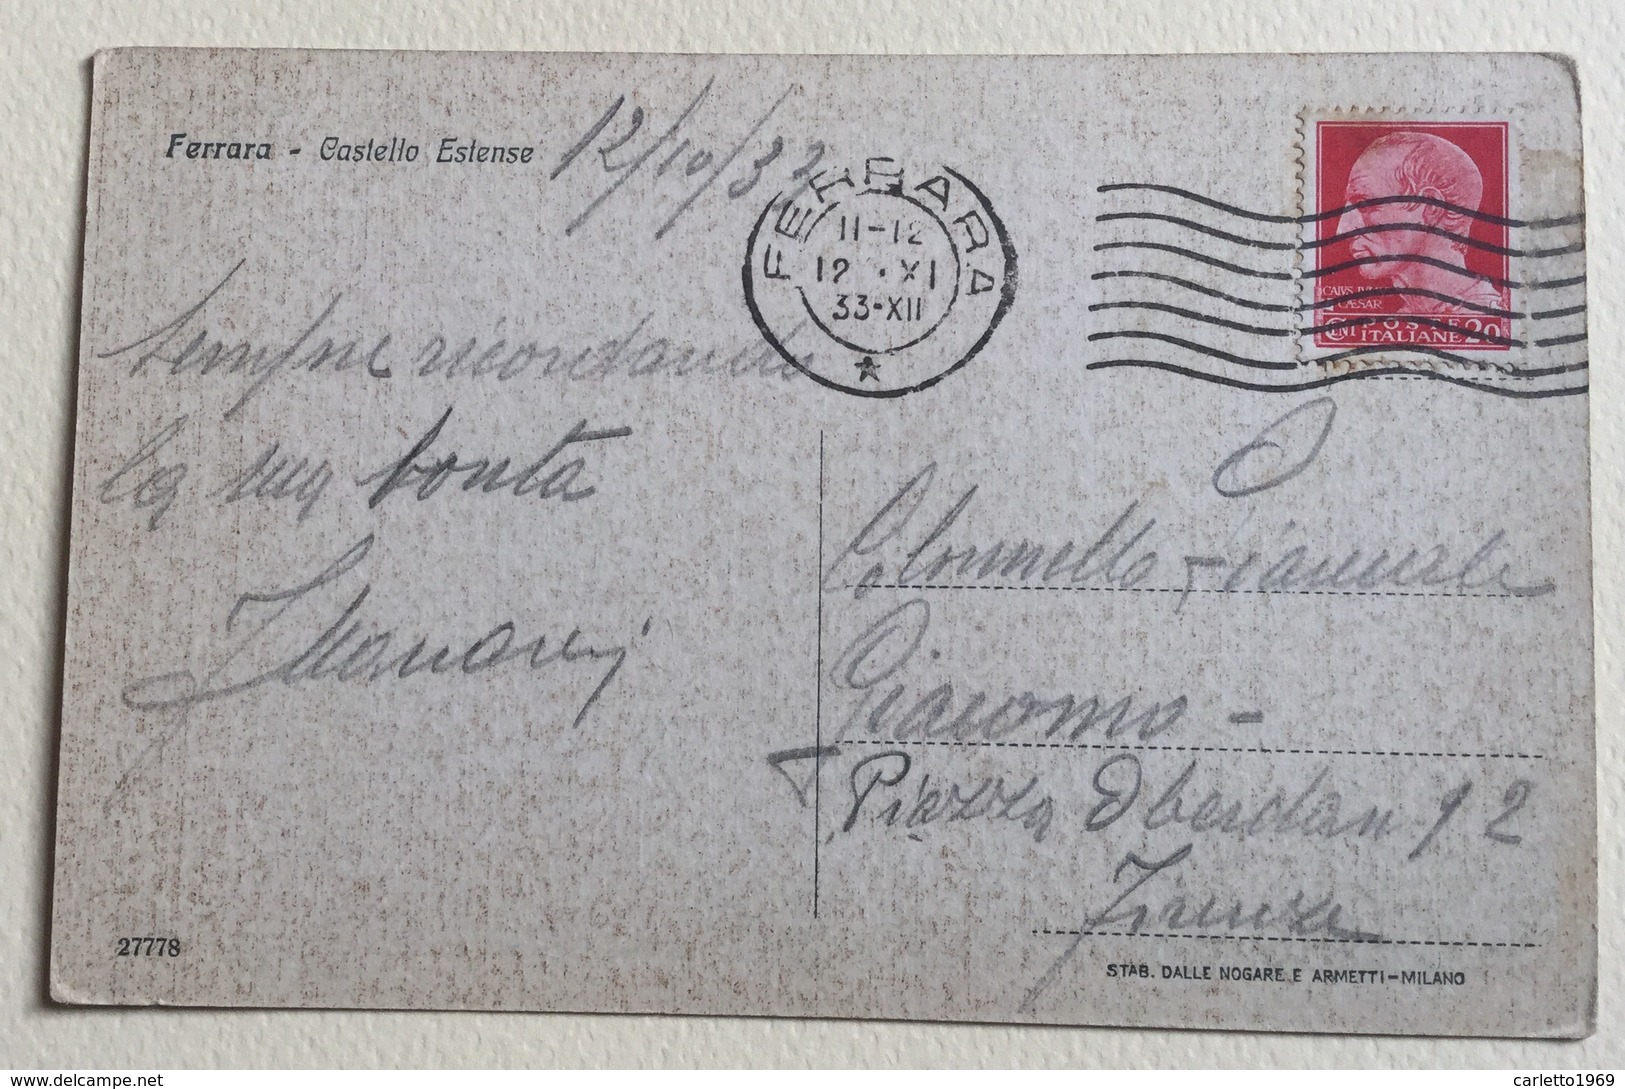 Ferrara - Castello Estense
12/10/33
FERRARA
11-12
12 · XI
33-XII
CAIVS IVLIVS
CÆSAR
CENT POSTE 20
ITALIANE
sempre ricordando
la sua bontà
Colonnello
Giacomo -
Piazza Oberdan 12
Firenze
27778
STAB. DALLE NOGARE E ARMETTI-MILANO
carletto1969